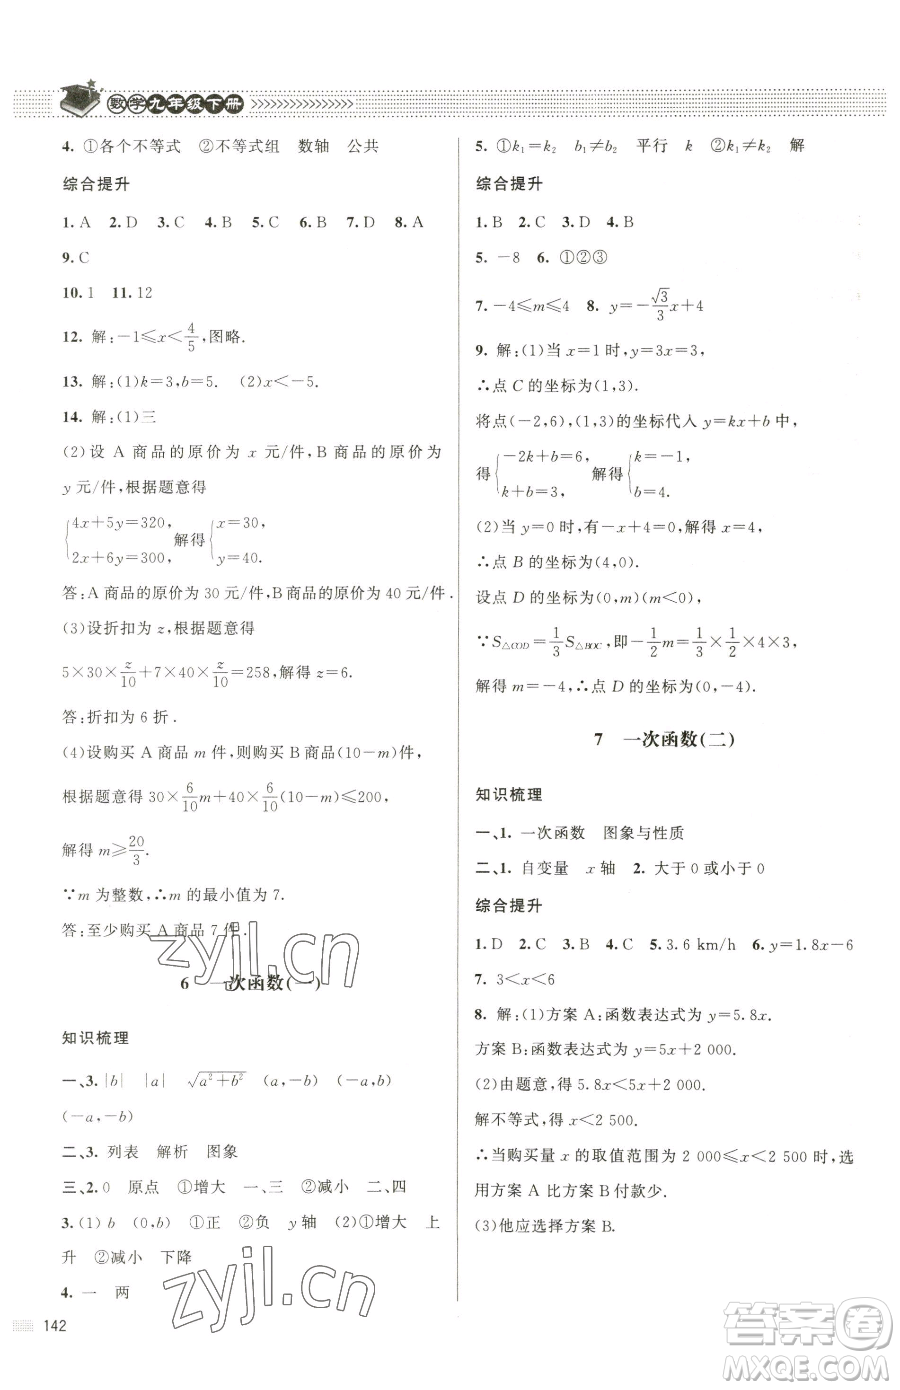 数学九年级下册
4. ①各个不等式 ②不等式组 数轴 公共
综合提升
1. A 2. D 3. C 4. B 5. C 6. B 7. D 8. A
9. C
10. 1 11. 12
12. 解:-1≤x<4/5,图略.
13. 解:(1)k=3,b=5. (2)x<-5.
14. 解:(1)三
(2)设 A 商品的原价为 x 元/件,B 商品的原价为
y 元/件,根据题意得
{4x+5y=320, 2x+6y=300, 解得{x=30, y=40.
答:A 商品的原价为 30 元/件,B 商品的原价为 40 元/件.
(3)设折扣为 z,根据题意得
5×30×z/10+7×40×z/10=258,解得 z=6.
答:折扣为 6 折.
(4)设购买 A 商品 m 件,则购买 B 商品(10-m)件,
根据题意得 30×6/10m+40×6/10(10-m)≤200,
解得 m≥20/3.
∵m 为整数,∴m 的最小值为 7.
答:至少购买 A 商品 7 件.
6 一次函数(一)
知识梳理
一、3. |b| |a| √(a²+b²) (a,-b) (-a,b)
(-a,-b)
二、3. 列表 解析 图象
三、2. 0 原点 ①增大 一、三 ②减小 二、四
3. (1)b (0,b) ①正 ②负 y 轴 (2)①增大 上
升 ②减小 下降
4. 一 两
142
5. ①k₁=k₂ b₁≠b₂ 平行 k ②k₁≠k₂ 解
综合提升
1. B 2. C 3. D 4. B
5. -8 6. ①②③
7. -4≤m≤4 8. y=-√3/3x+4
9. 解:(1)当 x=1 时,y=3x=3,
∴点 C 的坐标为(1,3).
将点(-2,6),(1,3)的坐标代入 y=kx+b 中,
得{-2k+b=6, k+b=3, 解得{k=-1, b=4.
(2)当 y=0 时,有-x+4=0,解得 x=4,
∴点 B 的坐标为(4,0).
设点 D 的坐标为(0,m)(m<0),
∵S△COD=1/3S△BOC,即-1/2m=1/3×1/2×4×3,
解得 m=-4,∴点 D 的坐标为(0,-4).
7 一次函数(二)
知识梳理
一、1. 一次函数 图象与性质
二、1. 自变量 x 轴 2. 大于 0 或小于 0
综合提升
1. D 2. C 3. B 4. C 5. 3.6 km/h 6. y=1.8x-6
7. 3<x<6
8. 解:(1)方案 A:函数表达式为 y=5.8x.
方案 B:函数表达式为 y=5x+2 000.
(2)由题意,得 5.8x<5x+2 000.
解不等式,得 x<2 500.
∴当购买量 x 的取值范围为 2 000≤x<2 500 时,选
用方案 A 比方案 B 付款少.
(3)他应选择方案 B.
zyjl.cn
zyjl.cn
答案圈
MXQE.COM